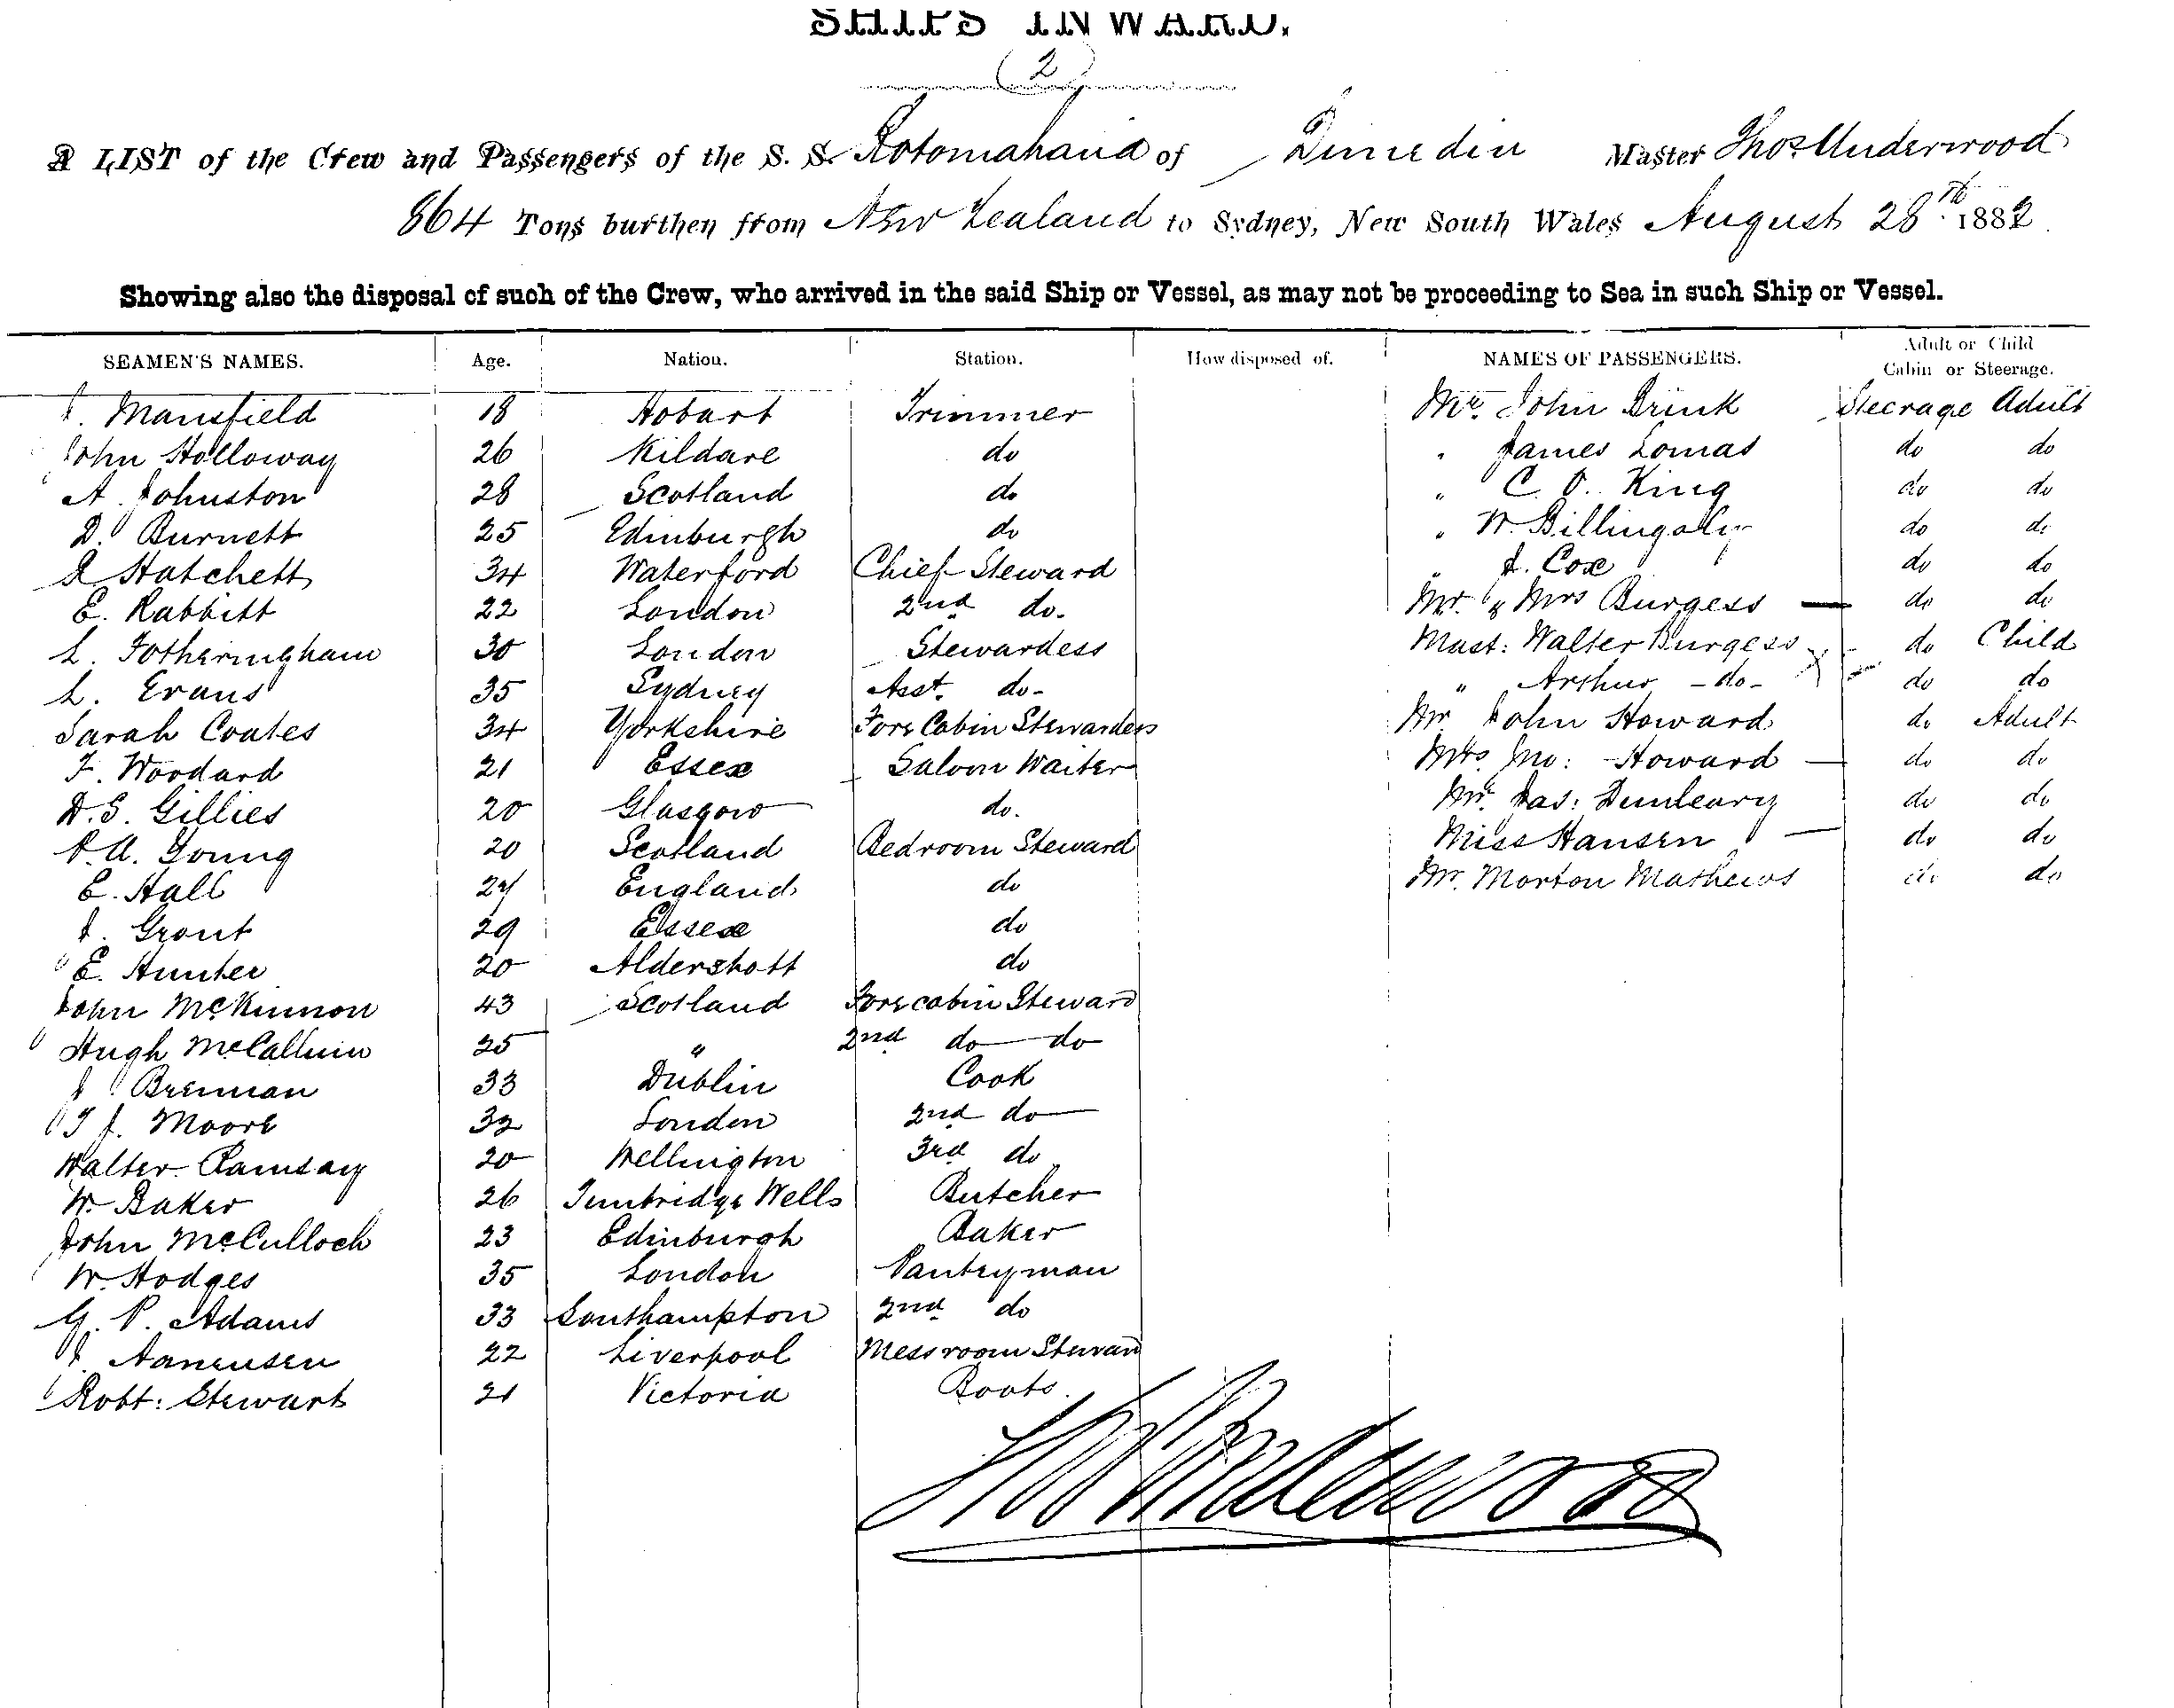 SHIPS INWARD.
2
A LIST of the Crew and Passengers of the S. S. Rotomahana of Dunedin Master Thos Underwood
864 Tons burthen from New Zealand to Sydney, New South Wales August 28th 1882
Showing also the disposal of such of the Crew, who arrived in the said Ship or Vessel, as may not be proceeding to Sea in such Ship or Vessel.
SEAMEN'S NAMES. Age. Nation. Station. How disposed of. NAMES OF PASSENGERS. Adult or Child Cabin or Steerage.
J. Mansfield 18 Hobart Trimmer Mr. John Brink Steerage Adult
John Holloway 26 Kildare do " James Lomas do do
A. Johnston 28 Scotland do " C. O. King do do
D. Burnett 25 Edinburgh do " W. do do
Hatchett 34 Waterford Chief Steward " J. Cox do do
E. Rabbitt 22 London 2nd do. Mr. & Mrs Burgess — do do
L. Fotheringham 30 London Stewardess Mast: Walter Burgess do Child
L. Evans 35 Sydney Asst. do- " Arthur -do- do do
Sarah Coates 34 Yorkshire Fore Cabin Stewardess Mr John Howard do Adult
F. Woodard 21 Essex Saloon Waiter Mrs Jno: Howard — do do
D. S. Gillies 20 Glasgow do. Mr. Jas: Dunleary do do
P. A. Young 20 Scotland Bedroom Steward Miss Hansen — do do
E. Hall 24 England do Mr. Morton Mathews do do
J. Grout 29 Essex do
E. Hunter 20 Aldershott do
John McKinnon 43 Scotland Fore cabin Steward
Hugh McCallum 25 " 2nd do do
J. Brennan 33 Dublin Cook
T J. Moore 32 London 2nd do
Walter Ramsay 20 Wellington 3rd do
W. Baker 26 Tunbridge Wells Butcher
John McCulloch 23 Edinburgh Baker
W. Hodges 35 London Pantryman
G. P. Adams 33 Southampton 2nd do
J. Aanensen 22 Liverpool Messroom Steward
Robt: Stewart 21 Victoria Boots.
Thos Underwood